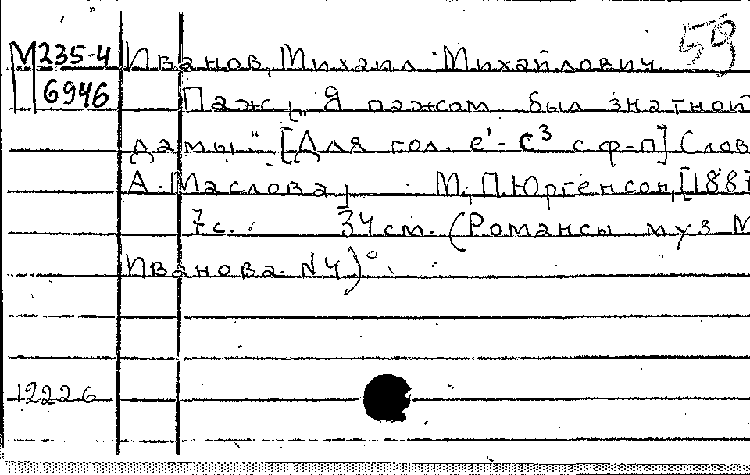 59
М235-4 Иванов, Михаил Михайлович.
6946 Паж. „Я пажом был знатной
дамы“ [Для гол. e¹- c³ с ф-п] Слов
А. Маслова. М., П. Юргенсон, [1887
7 с. 34 см. (Романсы муз М
Иванова. N 4)
12226